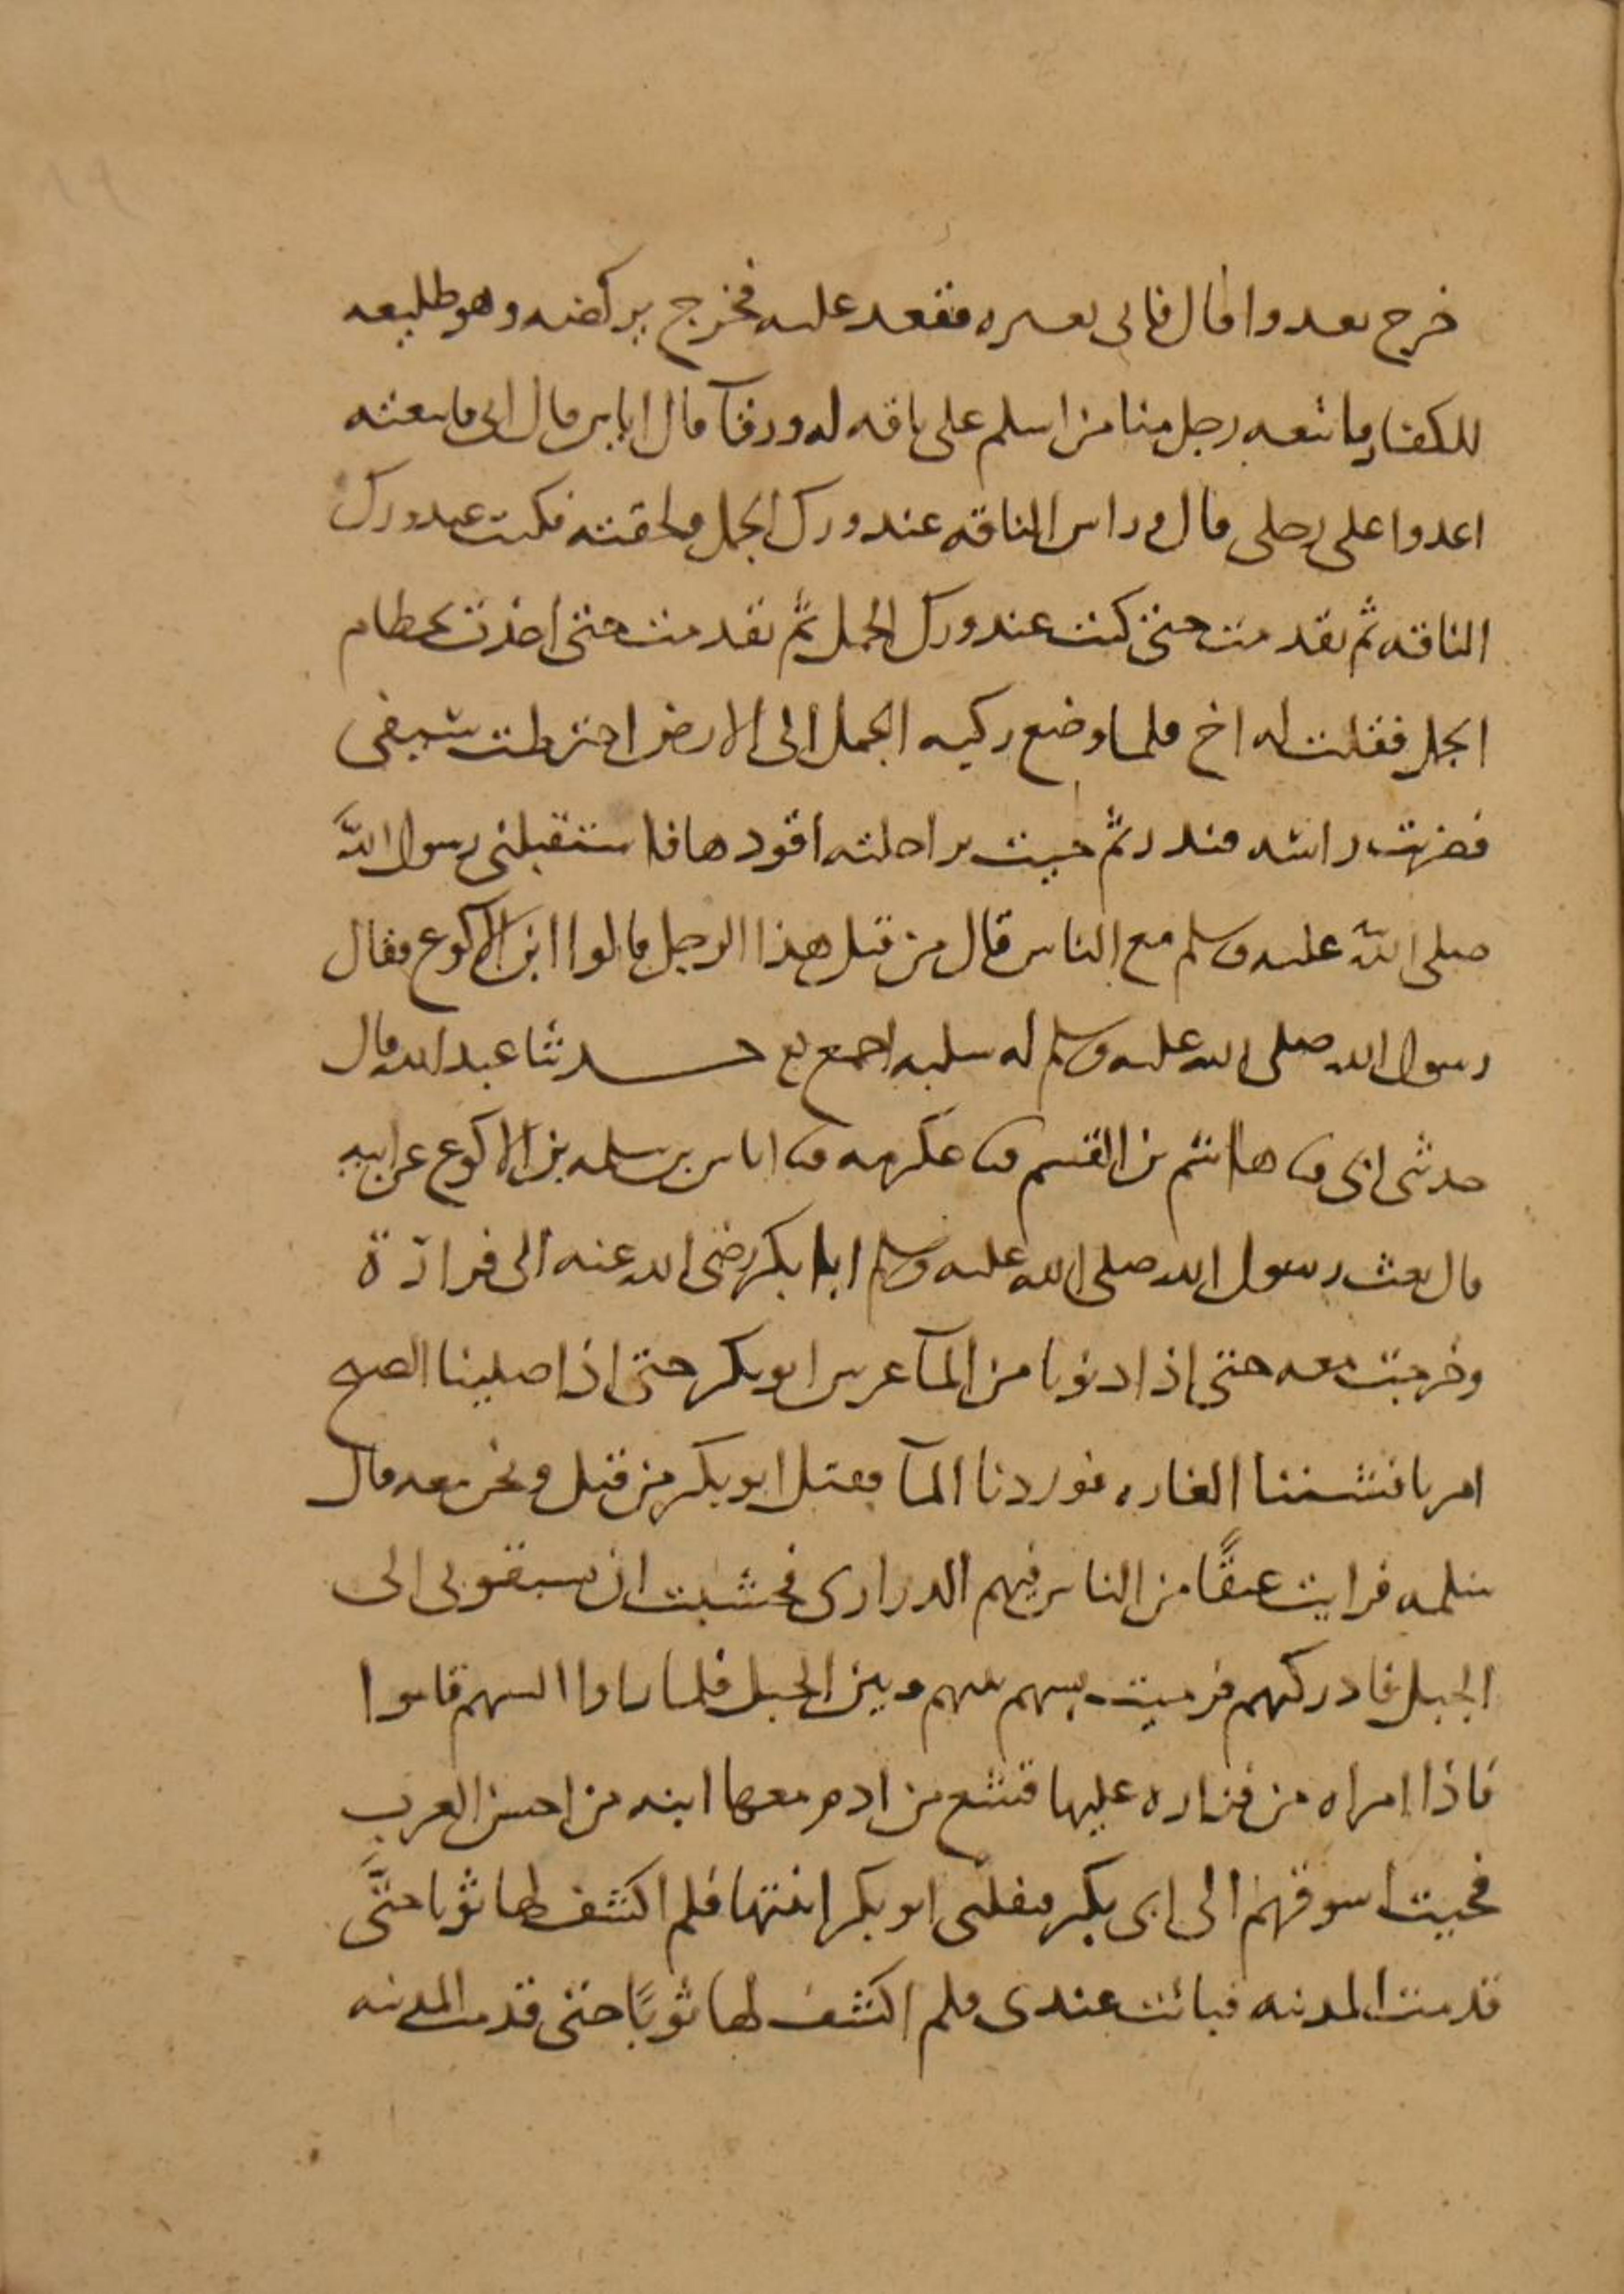 خرج يعدوا قال فاتى بعيره فقعد عليه فخرج يركضه وهو طليعه
للكفار فاتبعه رجل منا من اسلم على ناقه له ورقآ قال اياس قال ابى فاتبعته
اعدوا على رجلى قال وراس الناقه عند ورك الجمل ولحقته فكنت عند ورك
الناقه ثم تقدمت حتى كنت عند ورك الجمل ثم تقدمت حتى اخذت بخطام
الجمل فقلت له اخ فلما وضع ركبه الجمل الى الارض اخترطت سيفى
فضربت راسه فندر ثم جيت براحلته اقودها فاستقبلنى رسول الله
صلى الله عليه وسلم مع الناس قال من قتل هذا الرجل قالوا ابن الاكوع فقال
رسول الله صلى الله عليه وسلم له سلبه اجمع حدثنا عبد الله قال
حدثنى ابى ثنا هاشم بن القسم ثنا عكرمه ثنا اياس بن سلمه بن الاكوع عن ابيه
قال بعث رسول الله صلى الله عليه وسلم ابا بكر رضى الله عنه الى فزارة
وخرجت معه حتى اذا دنونا من المآ عرس ابو بكر حتى اذا صلينا الصبح
امرنا فشننا الغاره فوردنا المآ فقتل ابو بكر من قتل ونحن معه قال
سلمه فرايت عنقًا من الناس فيهم الدرارى فخشيت ان يسبقونى الى
الجبل فادركتهم فرميت بسهم بينهم وبين الجبل فلما راوا السهم قاموا
فاذا امراه من فزاره عليها قشع من ادم معها ابنه من احسن العرب
فجيت اسوقهم الى ابى بكر فنفلنى ابو بكر ابنتها فلم اكشف لها ثوبا حتَّى
قدمت المدينه فباتت عندى فلم اكشف لها ثوبًا حتى قدمت المدينه